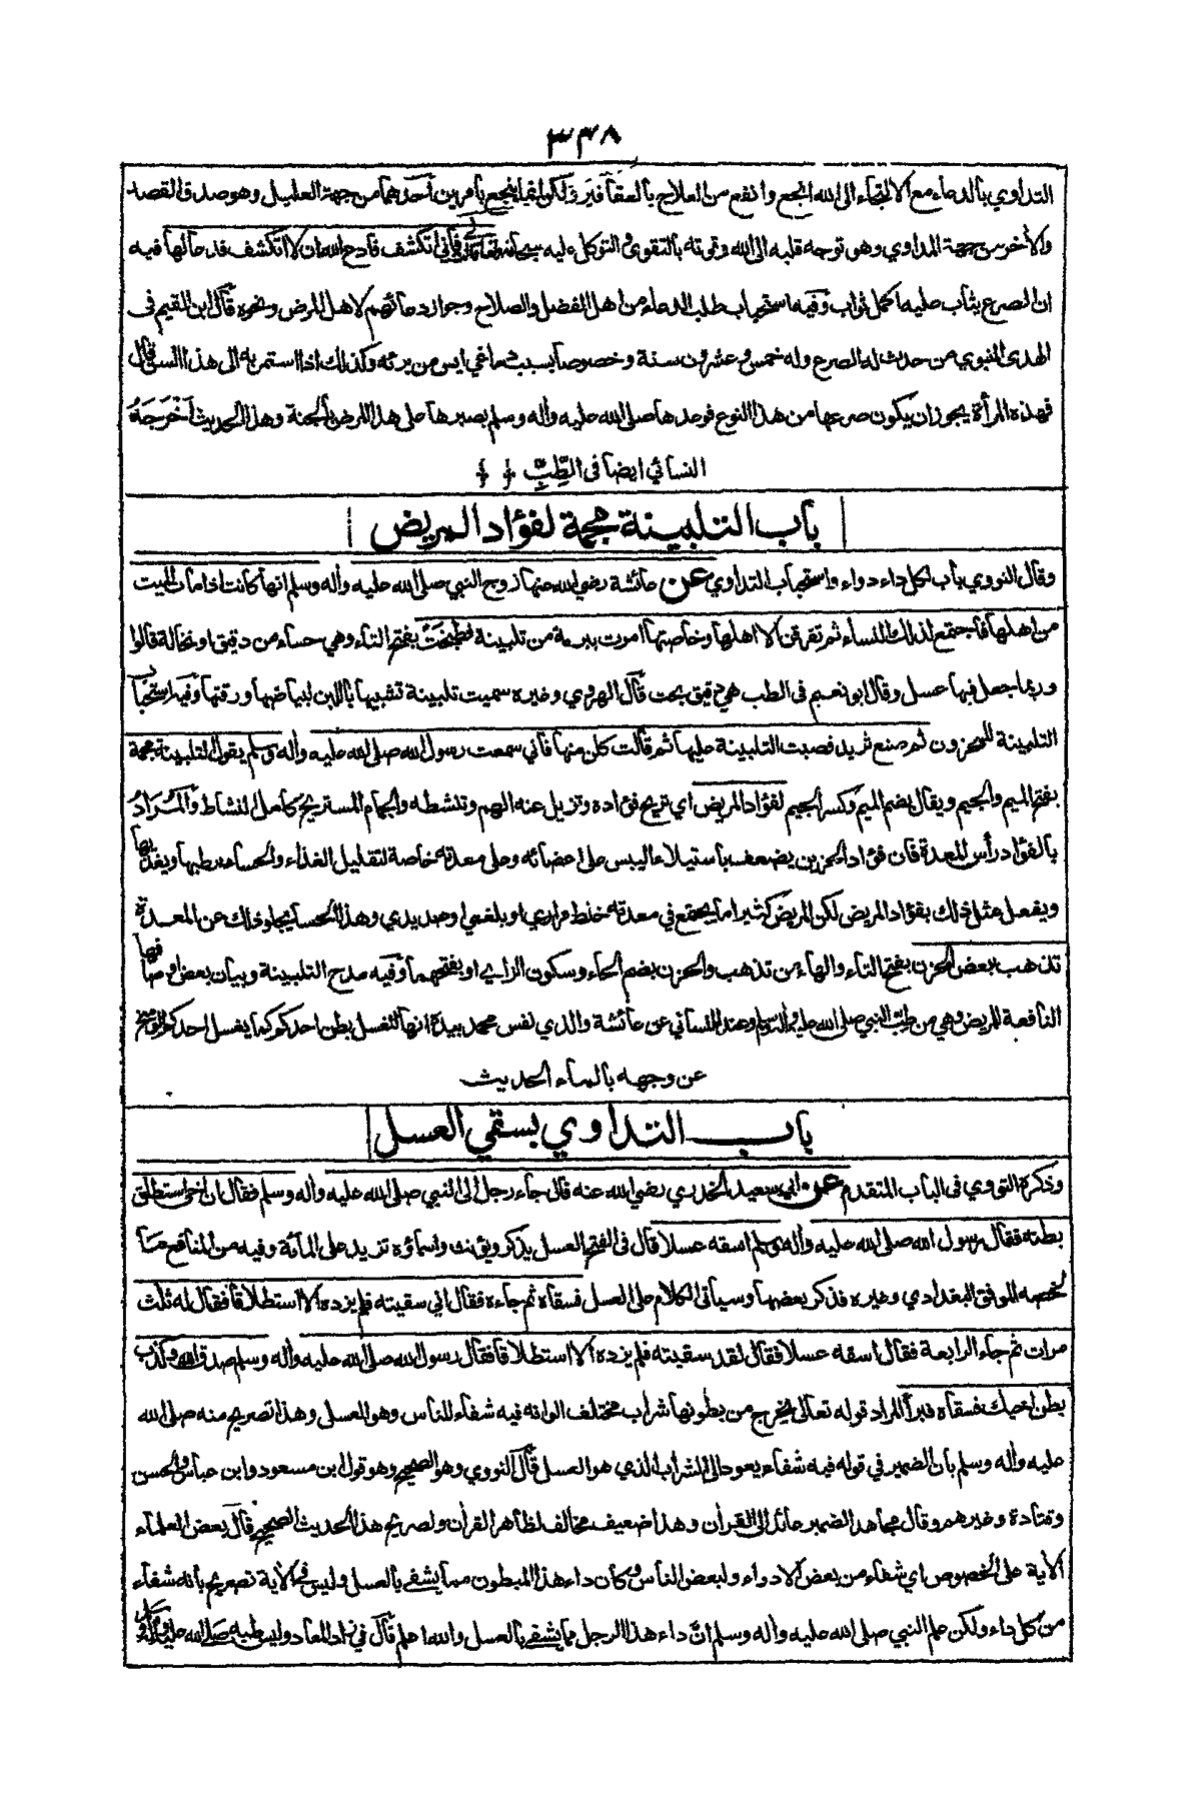 ٣٣٨
التداوي بالدعاء مع الالتجاء الى الله انجع وانفع من العلاج بالعقاقير ولكن انما ينجع بامرين احدهما من جهة العليل وهو صدق القصد
والأخر من جهة المداوي وهو توجه قلبه الى الله وقوته بالتقوى والتوكل عليه سبحانه وتعالى فأني اتكشف فادع الله ان لا اتكشف فدعا لها فيه
ان الصرع يثاب عليه اكمل ثواب وفيه استحباب طلب الدعاء من اهل الفضل والصلاح وجواز دعائهم لاهل المرض ونحوه قال ابن القيم فى
الهدى النبوي من حدث له الصرع وله خمس وعشرون سنة وخصوصا بسبب دماغي ايس من برئه وكذلك اذا استمر به الى هذا السن قال
فهذه المرأة يجوز ان يكون صرعها من هذا النوع فوعدها صلى الله عليه واله وسلم بصبرها على هذا المرض بالجنة وهذا الحديث اخرجه
النسائي ايضا فى الطِّبِّ
باب التلبينة مجمة لفؤاد المريض
وقال النووي باب لكل داء دواء واستحباب التداوي عن عائشة رضي الله عنها زوج النبي صلى الله عليه واله وسلم انها كانت اذا مات الميت
من اهلها فاجتمع لذلك النساء ثم تفرقن الا اهلها وخاصتها امرت ببرمة من تلبينة فطبخت بفتح التاء وهي حساء من دقيق او نخالة قالوا
وربما جعل فيها عسل وقال ابو نعيم فى الطب هي دقيق بحت قال الهروي وغيره سميت تلبينة تشبيها باللبن لبياضها ورقتها وفيه استحباب
التلبينة للمحزون ثم صنع ثريد فصبت التلبينة عليها ثم قالت كلن منها فأني سمعت رسول الله صلى الله عليه واله وسلم يقول التلبينة مجمة
بفتح الميم والجيم ويقال بضم الميم وكسر الجيم لفؤاد المريض اي تريح فؤاده وتزيل عنه الهم وتنشطه والجمام المستريح كاهل النشاط والمراد
بالفؤاد رأس المعدة فان فؤاد الحزين يضعف باستيلاء اليبس على اعضائه وعلى معدته خاصة لتقليل الغذاء والحساء يرطبها ويغذيها
ويفعل مثل ذلك بفؤاد المريض لكن المريض كثيرا ما يجتمع في معدته خلط مراري او بلغمي او صديدي وهذا الحساء يجلو ذلك عن المعدة
تذهب ببعض الحزن بفتح التاء والهاء من تذهب والحزن بضم الحاء وسكون الزاي او بفتحهما وفيه مدح التلبينة وبيان بعض اوصافها
النافعة للمريض وهي من طب النبي صلى الله عليه واله وسلم وعند النسائي عن عائشة والذي نفس محمد بيده انها لتغسل بطن احدكم كما يغسل احدكم الوسخ
عن وجهه بالماء الحديث
باب التداوي بسقي العسل
وذكره النووي فى الباب المتقدم عن ابي سعيد الخدري رضي الله عنه قال جاء رجل الى النبي صلى الله عليه واله وسلم فقال ان اخى استطلق
بطنه فقال رسول الله صلى الله عليه واله وسلم اسقه عسلا قال فى الفتح العسل يذكر ويؤنث واسماؤه تزيد على المأئة وفيه من المنافع ما
لخصه الموفق البغدادي وغيره فذكر بعضها وسيأتى الكلام على العسل فسقاه ثم جاءه فقال اني سقيته فلم يزده الا استطلاقا فقال له ثلث
مرات ثم جاء الرابعة فقال اسقه عسلا فقال لقد سقيته فلم يزده الا استطلاقا فقال رسول الله صلى الله عليه واله وسلم صدق الله وكذب
بطن اخيك فسقاه فبرأ المراد قوله تعالى يخرج من بطونها شراب مختلف الوانه فيه شفاء للناس وهو العسل وهذا تصريح منه صلى الله
عليه واله وسلم بان الضمير في قوله فيه شفاء يعود الى الشراب الذي هو العسل قال النووي وهو الصحيح وهو قول ابن مسعود وابن عباس والحسن
وقتادة وغيرهم وقال مجاهد الضمير عائد الى القرآن وهذا ضعيف مخالف لظاهر القرآن ولصريح هذا الحديث الصحيح قال بعض العلماء
الآية على الخصوص اي شفاء من بعض الادواء ولبعض الناس وكان داء هذا المبطون مما يشفى بالعسل وليس فى الآية تصريح بانه شفاء
من كل داء ولكن علم النبي صلى الله عليه واله وسلم ان داء هذا الرجل مما يشفى بالعسل والله اعلم قال في زاد المعاد وليس طبه صلى الله عليه واله وسلم